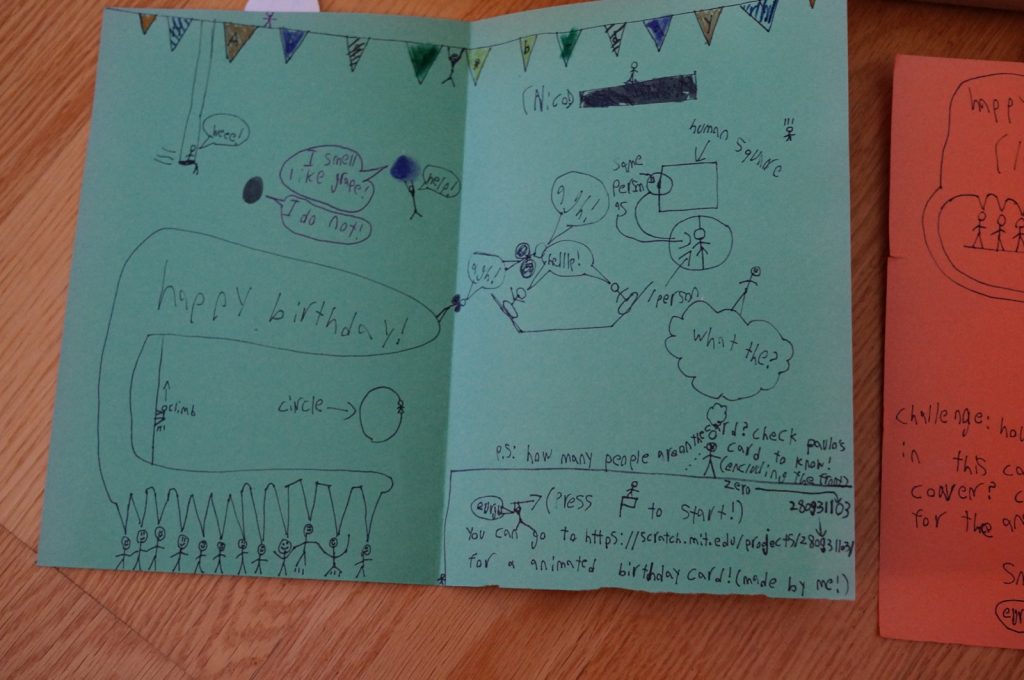 (Nico)
human square
same
person
as
1 person
heee!
I smell
like grape!
I do not!
help!
ggh!
ggh!
hellle!
happy birthday!
climb
circle →
What the?
P.S: how many people are on the card? check paulo's
card to know!
(encluding the front)
zero
280931103
(Press to start!)
You can go to https://scratch.mit.edu/projects/280931103/
for a animated birthday card! (made by me!)
happy
challenge: how
in this
cover?
for the